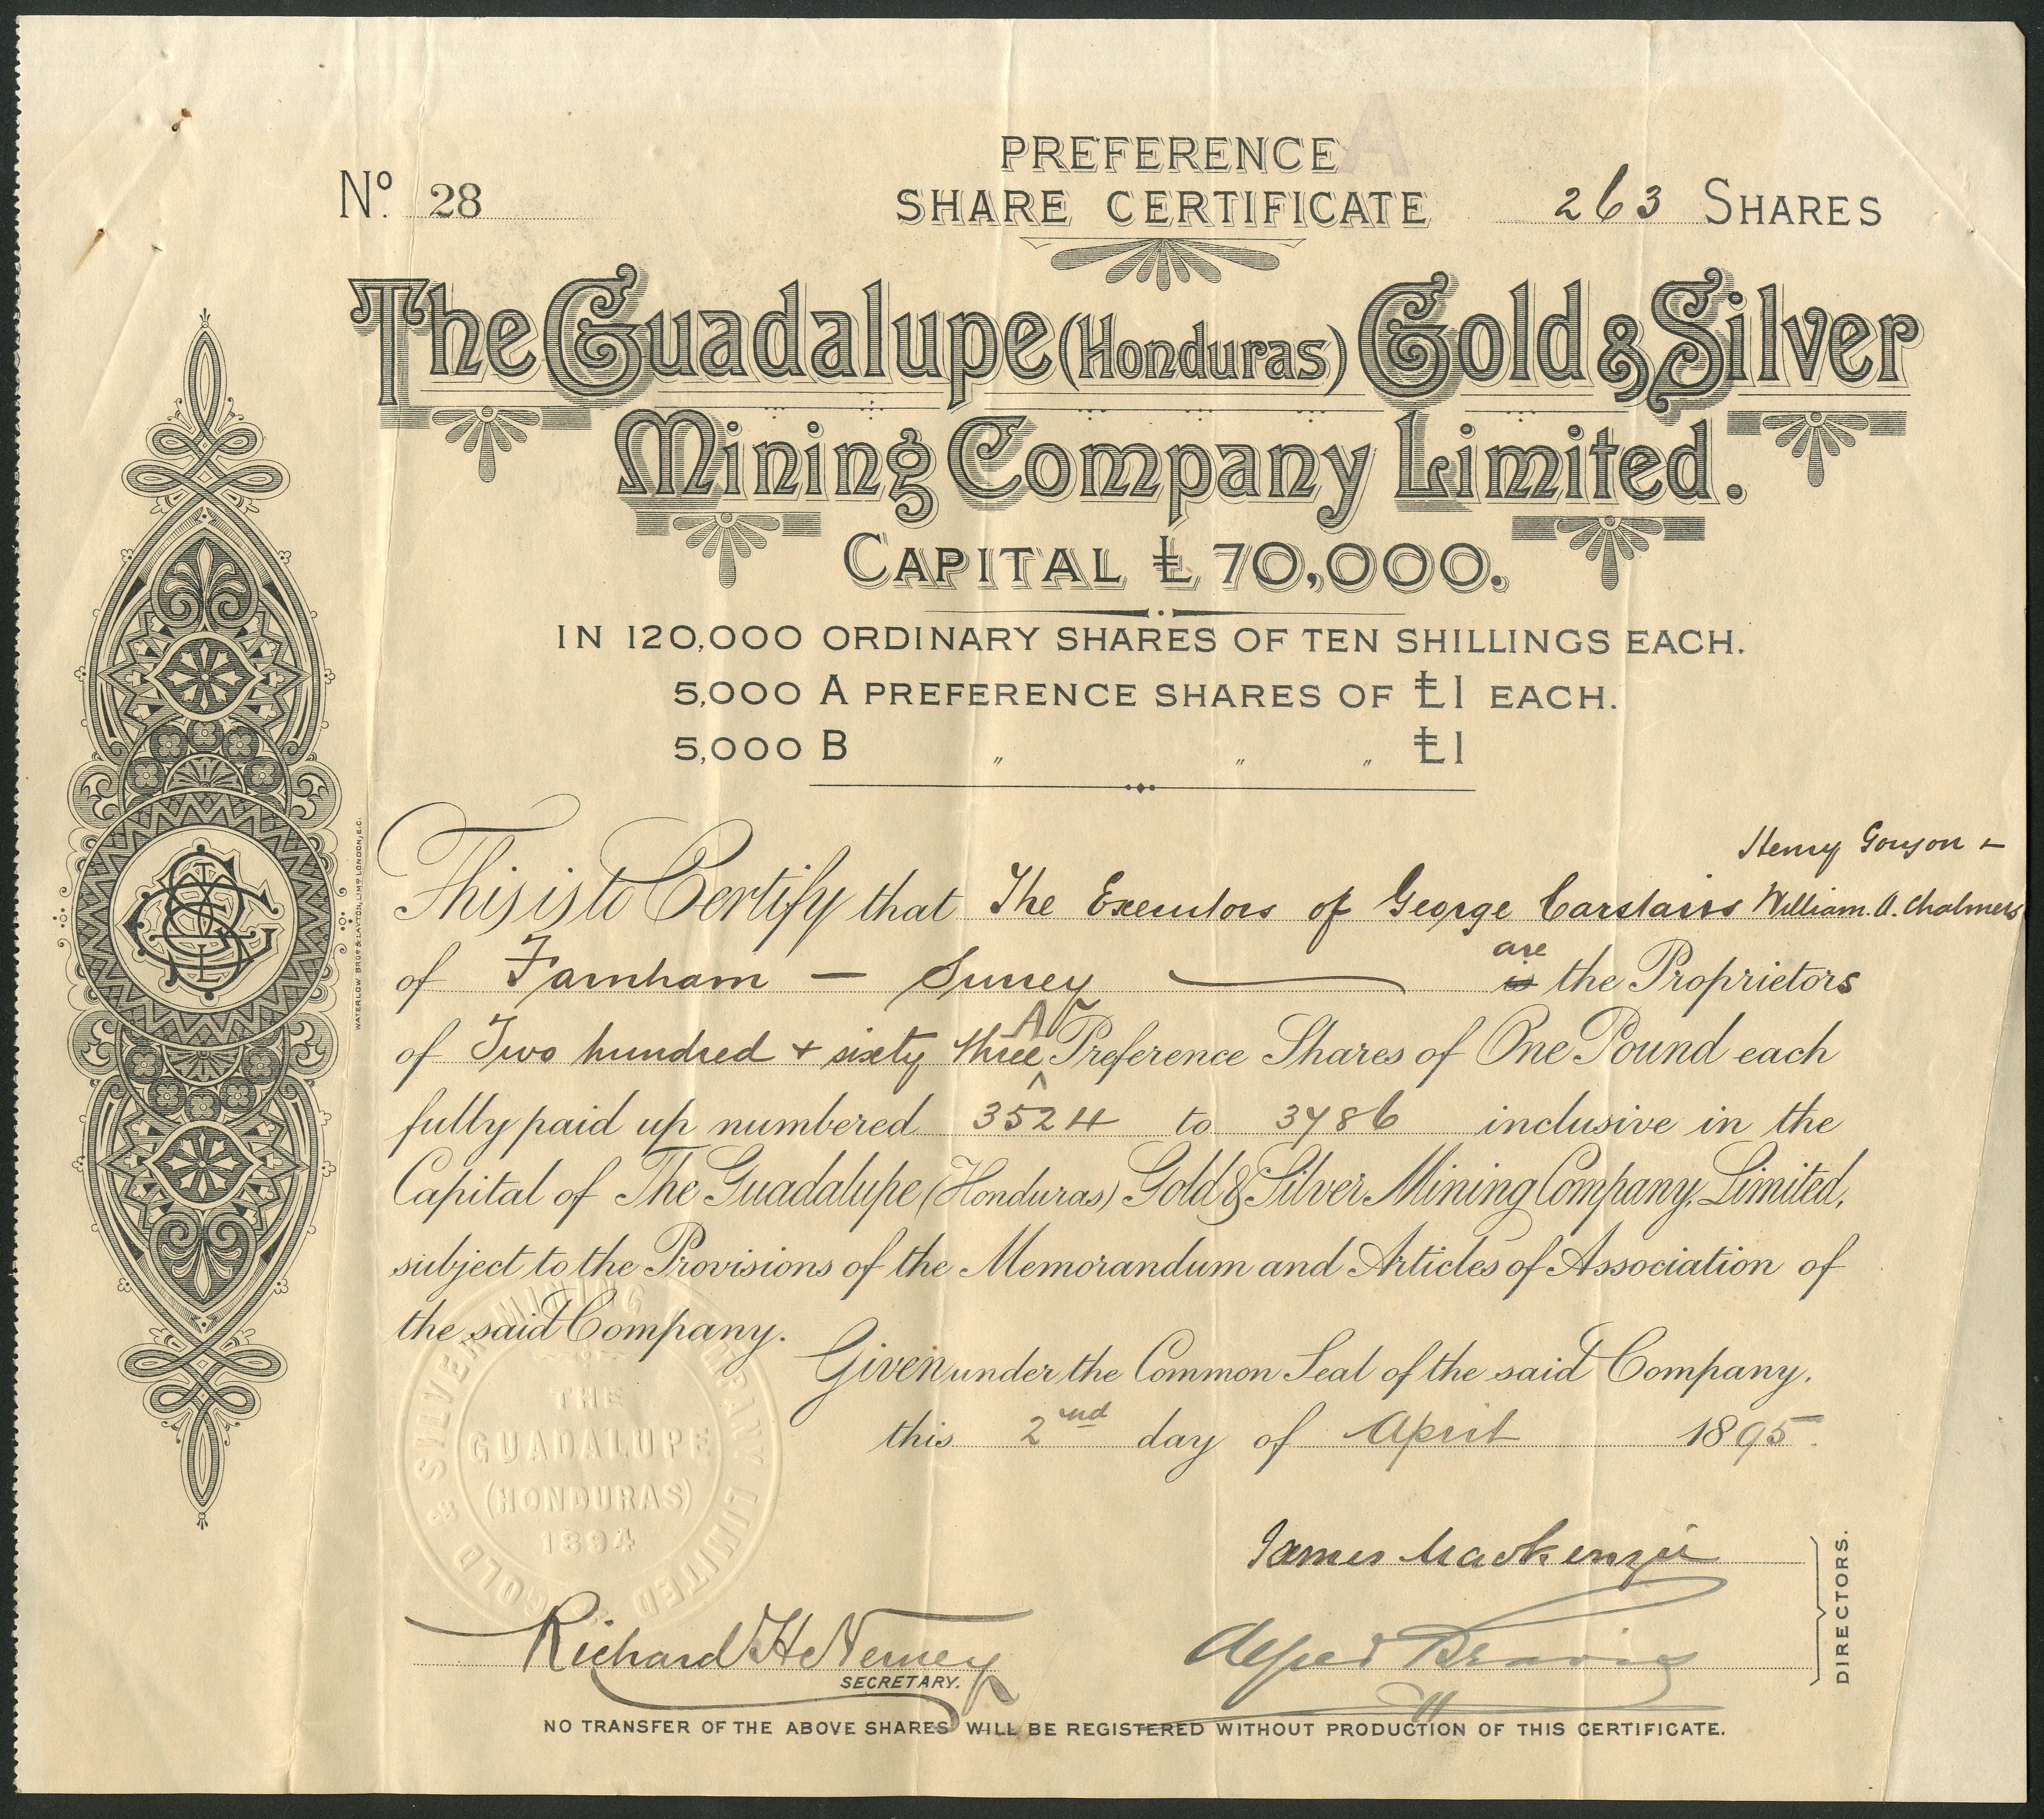 PREFERENCE A
Nº 28 SHARE CERTIFICATE 263 SHARES
The Guadalupe (Honduras) Gold & Silver
Mining Company Limited.
CAPITAL £70,000.
IN 120,000 ORDINARY SHARES OF TEN SHILLINGS EACH.
5,000 A PREFERENCE SHARES OF £1 EACH.
5,000 B " " " £1
Henry &
This is to Certify that The Executors of George Carstairs William A. Chalmers
are
of Farnham — Surrey — is the Proprietors
A
of Two hundred & sixty three Preference Shares of One Pound each
fully paid up numbered 3524 to 3786 inclusive in the
Capital of The Guadalupe (Honduras) Gold & Silver Mining Company, Limited,
subject to the Provisions of the Memorandum and Articles of Association of
the said Company.
Given under the Common Seal of the said Company.
this 2nd day of April 1895.
GOLD & SILVER MINING COMPANY LIMITED
THE
GUADALUPE
(HONDURAS)
1894
James Mackenzie
Richard H Nerney
Alfred
SECRETARY.
DIRECTORS.
NO TRANSFER OF THE ABOVE SHARES WILL BE REGISTERED WITHOUT PRODUCTION OF THIS CERTIFICATE.
WATERLOW BROS & LAYTON, LIMD LONDON, E.C.